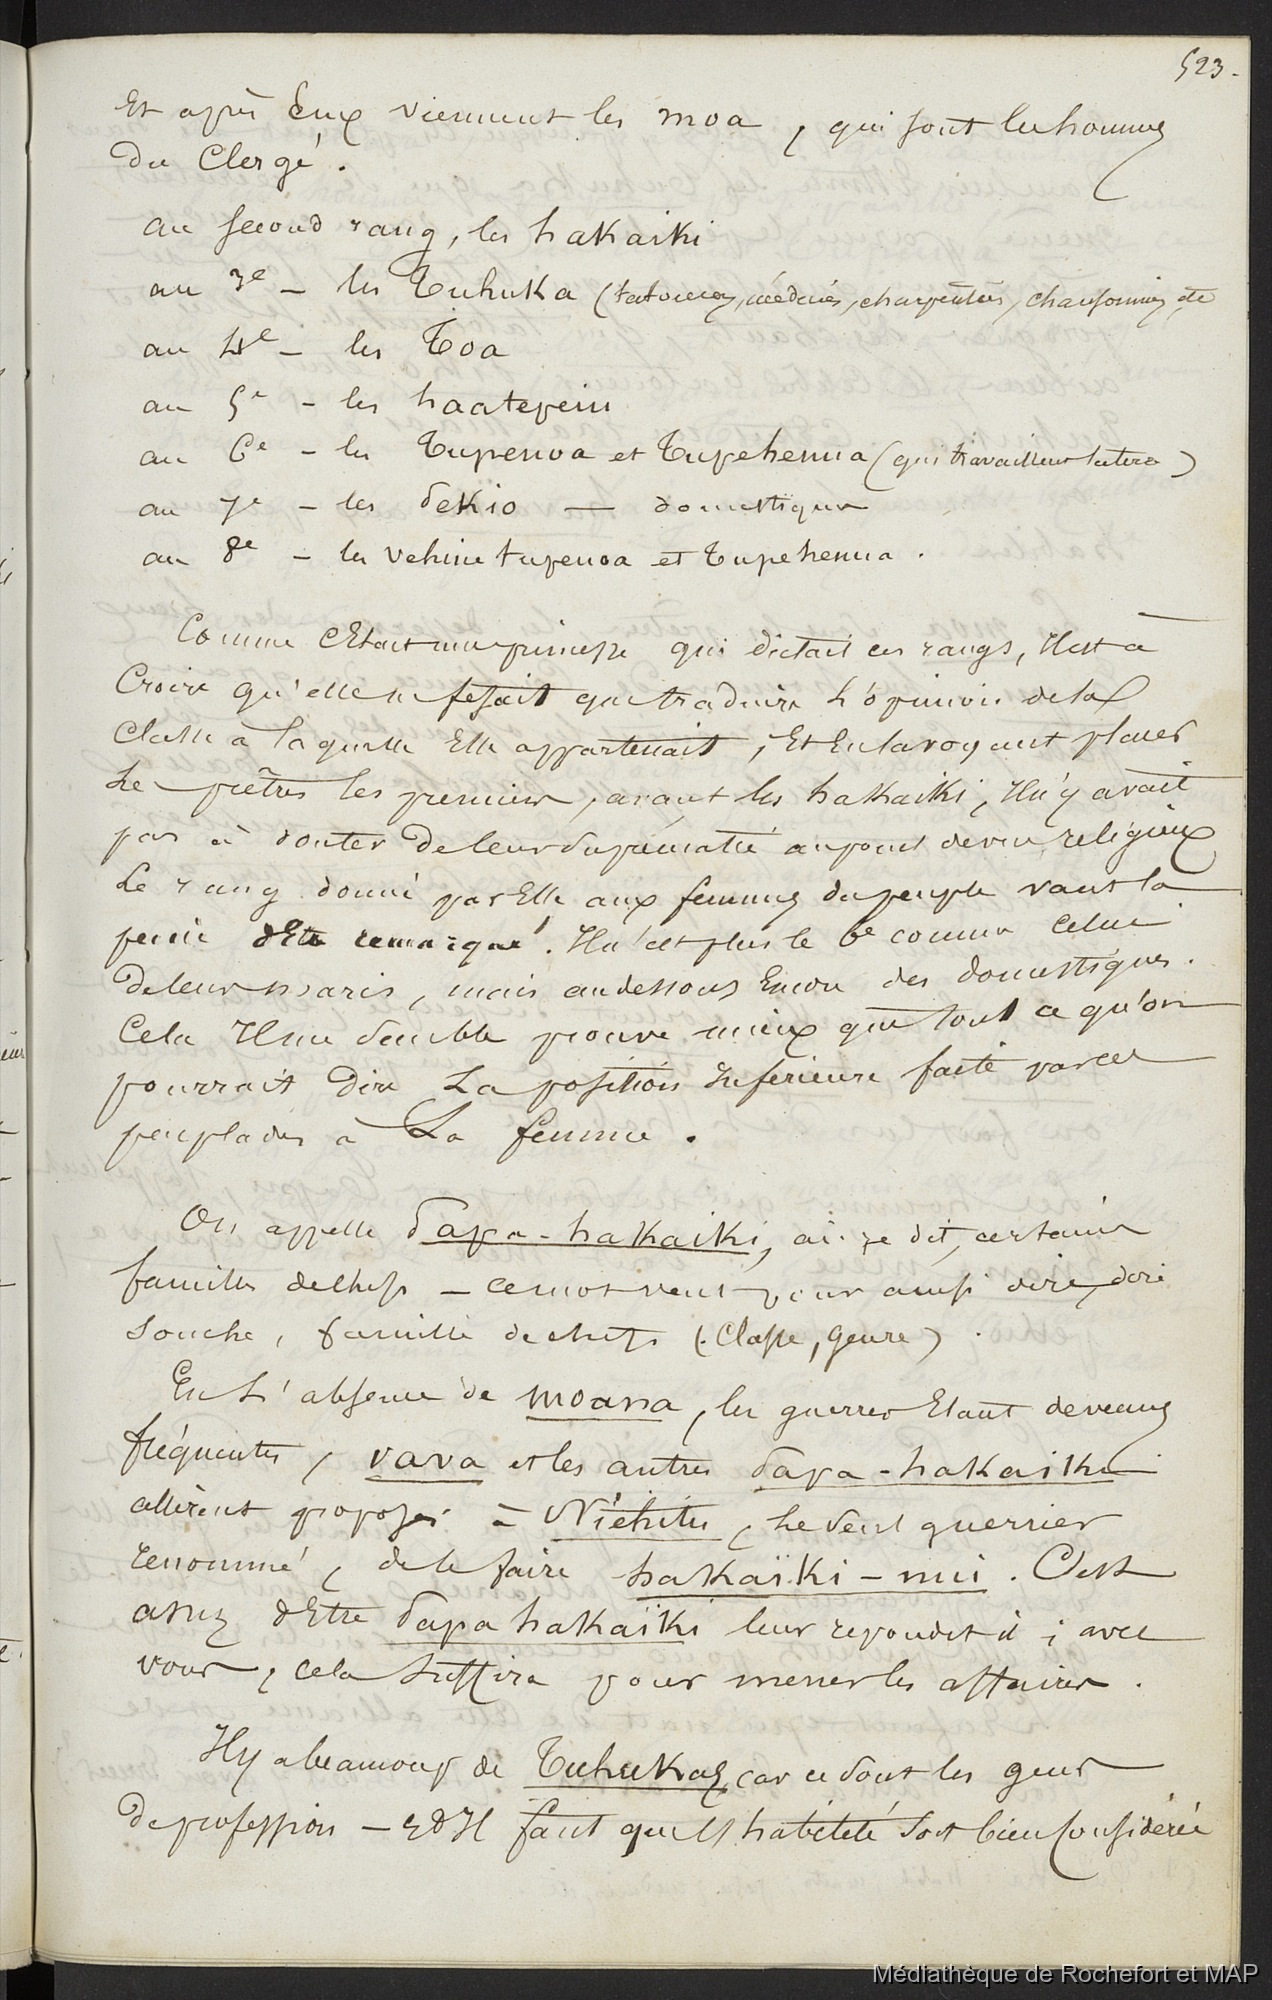 523.
Et après Eux viennent les moa, qui sont les hommes
Du Clergé.
au second rang, les hakaiki
au 3e – les Tuhuka (tatoueurs, médecins, charpentiers, chansonniers, etc
au 4e – les Toa
au 5e – les haatepeiu
au 6e – les Tupenoa et Tupehenua (qui travaillent la terre)
au 7e – les Pekio — domestiques
au 8e – les vehine tupenoa et Tupehenua.
Comme c'Etait une princesse qui dictait ces rangs, Il est à
Croire qu'elle ne fesait que traduire l'opinion de la
Classe à laquelle Elle appartenait, Et En la voyant placer
Les prêtres les premiers, avant les hakaiki, Il n'y avait
pas à douter De leur Suprématie au point de vue religieux
Le rang donné par Elle aux femmes du peuple vaut la
peine d'Etre remarqué. Il n'est plus le 6e comme celui
De leurs maris, mais au dessous Encore des domestiques.
Cela Il me Semble prouve mieux que tout ce qu'on
pourrait Dire La position Inférieure faite par ces
peuplades à La femme.
On appelle Papa-hakaiki, ai-je dit, certaines
familles de chefs – ce mot veut pour ainsi dire, dire
Souche, famille de chefs (Classe, genre).
En L'absence de Moana, les guerres Etant devenues
fréquentes, Vava et les autres Papa-hakaiki
allèrent proposer à Niéhitu, le seul guerrier
renommé, de le faire hakaïki-nui. C'est
assez d'Etre Papa hakaïki leur répondit il ; avec
vous, cela Suffira pour mener les affaires.
Il y a beaucoup de Tuhukas, car ce Sont les gens
De profession – Et Il faut que l'habileté Soit bien Considérée
Médiathèque de Rochefort et MAP